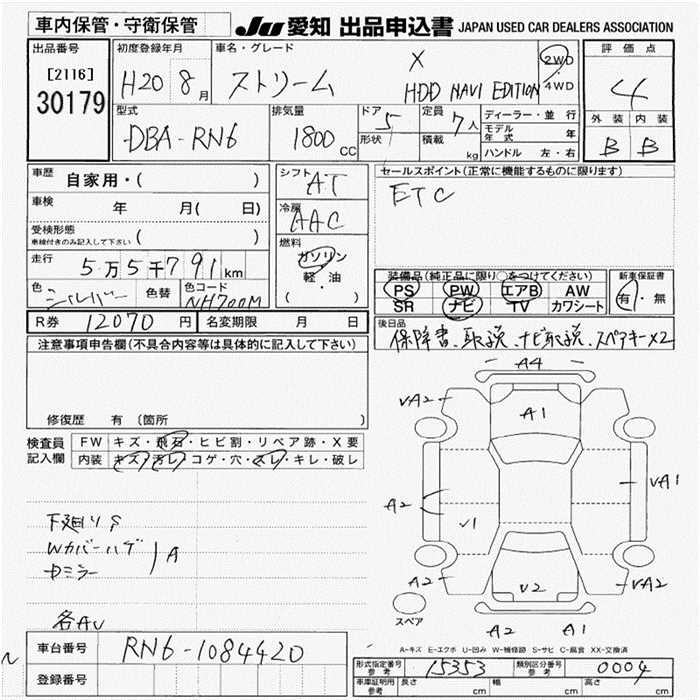 車内保管・守衛保管
JU 愛知 出品申込書 JAPAN USED CAR DEALERS ASSOCIATION
出品番号
[2116]
30179
初度登録年月
H20 8月
車名・グレード
ストリーム
X
HDD NAVI EDITION
2WD
4WD
評価点
4
外装 内装
B B
型式
DBA-RN6
排気量
1800 cc
ドア 5
形状
定員 7人
積載 kg
ディーラー・並行
モデル年式 年
ハンドル 左・右
車歴 自家用・( )
車検 年 月( 日)
受検形態
車検付きのみ記入して下さい ( )
走行 5万5千791km
色 シルバー 色替 色コード NH700M
シフト AT
冷房 AAC
燃料
ガソリン
軽・油
( ・ )
セールスポイント(正常に機能するものに限ります)
ETC
装備品(純正品に限り○をつけてください)
PS PW エアB AW
SR ナビ TV カワシート
新車保証書
有・無
R券 12070円 名変期限 月 日
後日品
保障書、取説、ナビ取説、スペアキー×2
注意事項申告欄(不具合内容等は具体的に記入して下さい)
修復歴 有 〔箇所 〕
検査員
記入欄
FW キズ・飛石・ヒビ割・リペア跡・X要
内装 キズ・汚レ・コゲ・穴・スレ・キレ・破レ
下廻りS
Wカバーハゲ
Dミラー
A
各AU
A4
VA2
A1
VA1
A2
V1
A2
V2
VA2
スペア
A2
A1
A-キズ E-エクボ U-凹み W-補修跡 S-サビ C-腐食 XX-交換済
車台番号 RN6-1084420
登録番号
形式指定番号
参考
15353
類別区分番号
参考
0004
車庫証明用
参考
長さ cm 幅 cm 高さ cm